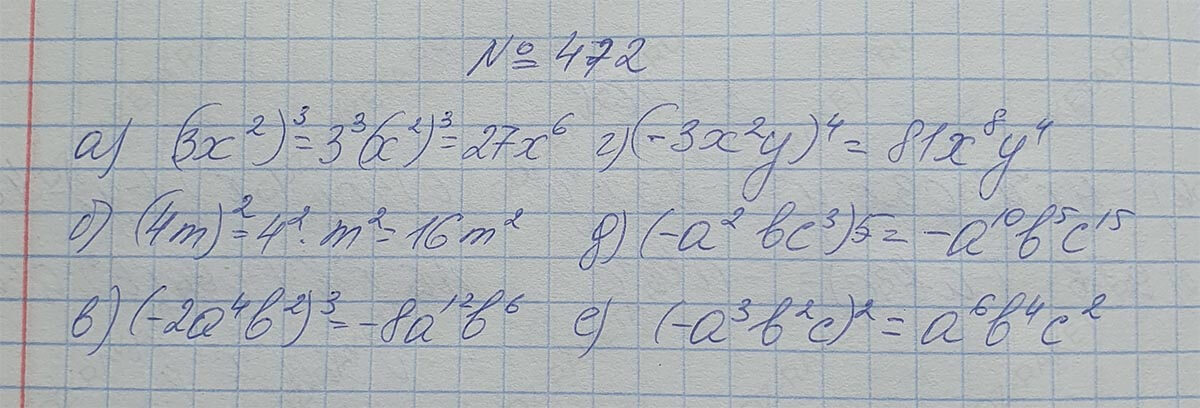 № 472
а) (3x²)³ = 3³(x²)³ = 27x⁶ г) (-3x²y)⁴ = 81x⁸y⁴
б) (4m)² = 4² · m² = 16m² д) (-a² bc³)5 = -a¹⁰b⁵c¹⁵
в) (-2a⁴b²)³ = -8a¹²b⁶ е) (-a³b²c)² = a⁶b⁴c²